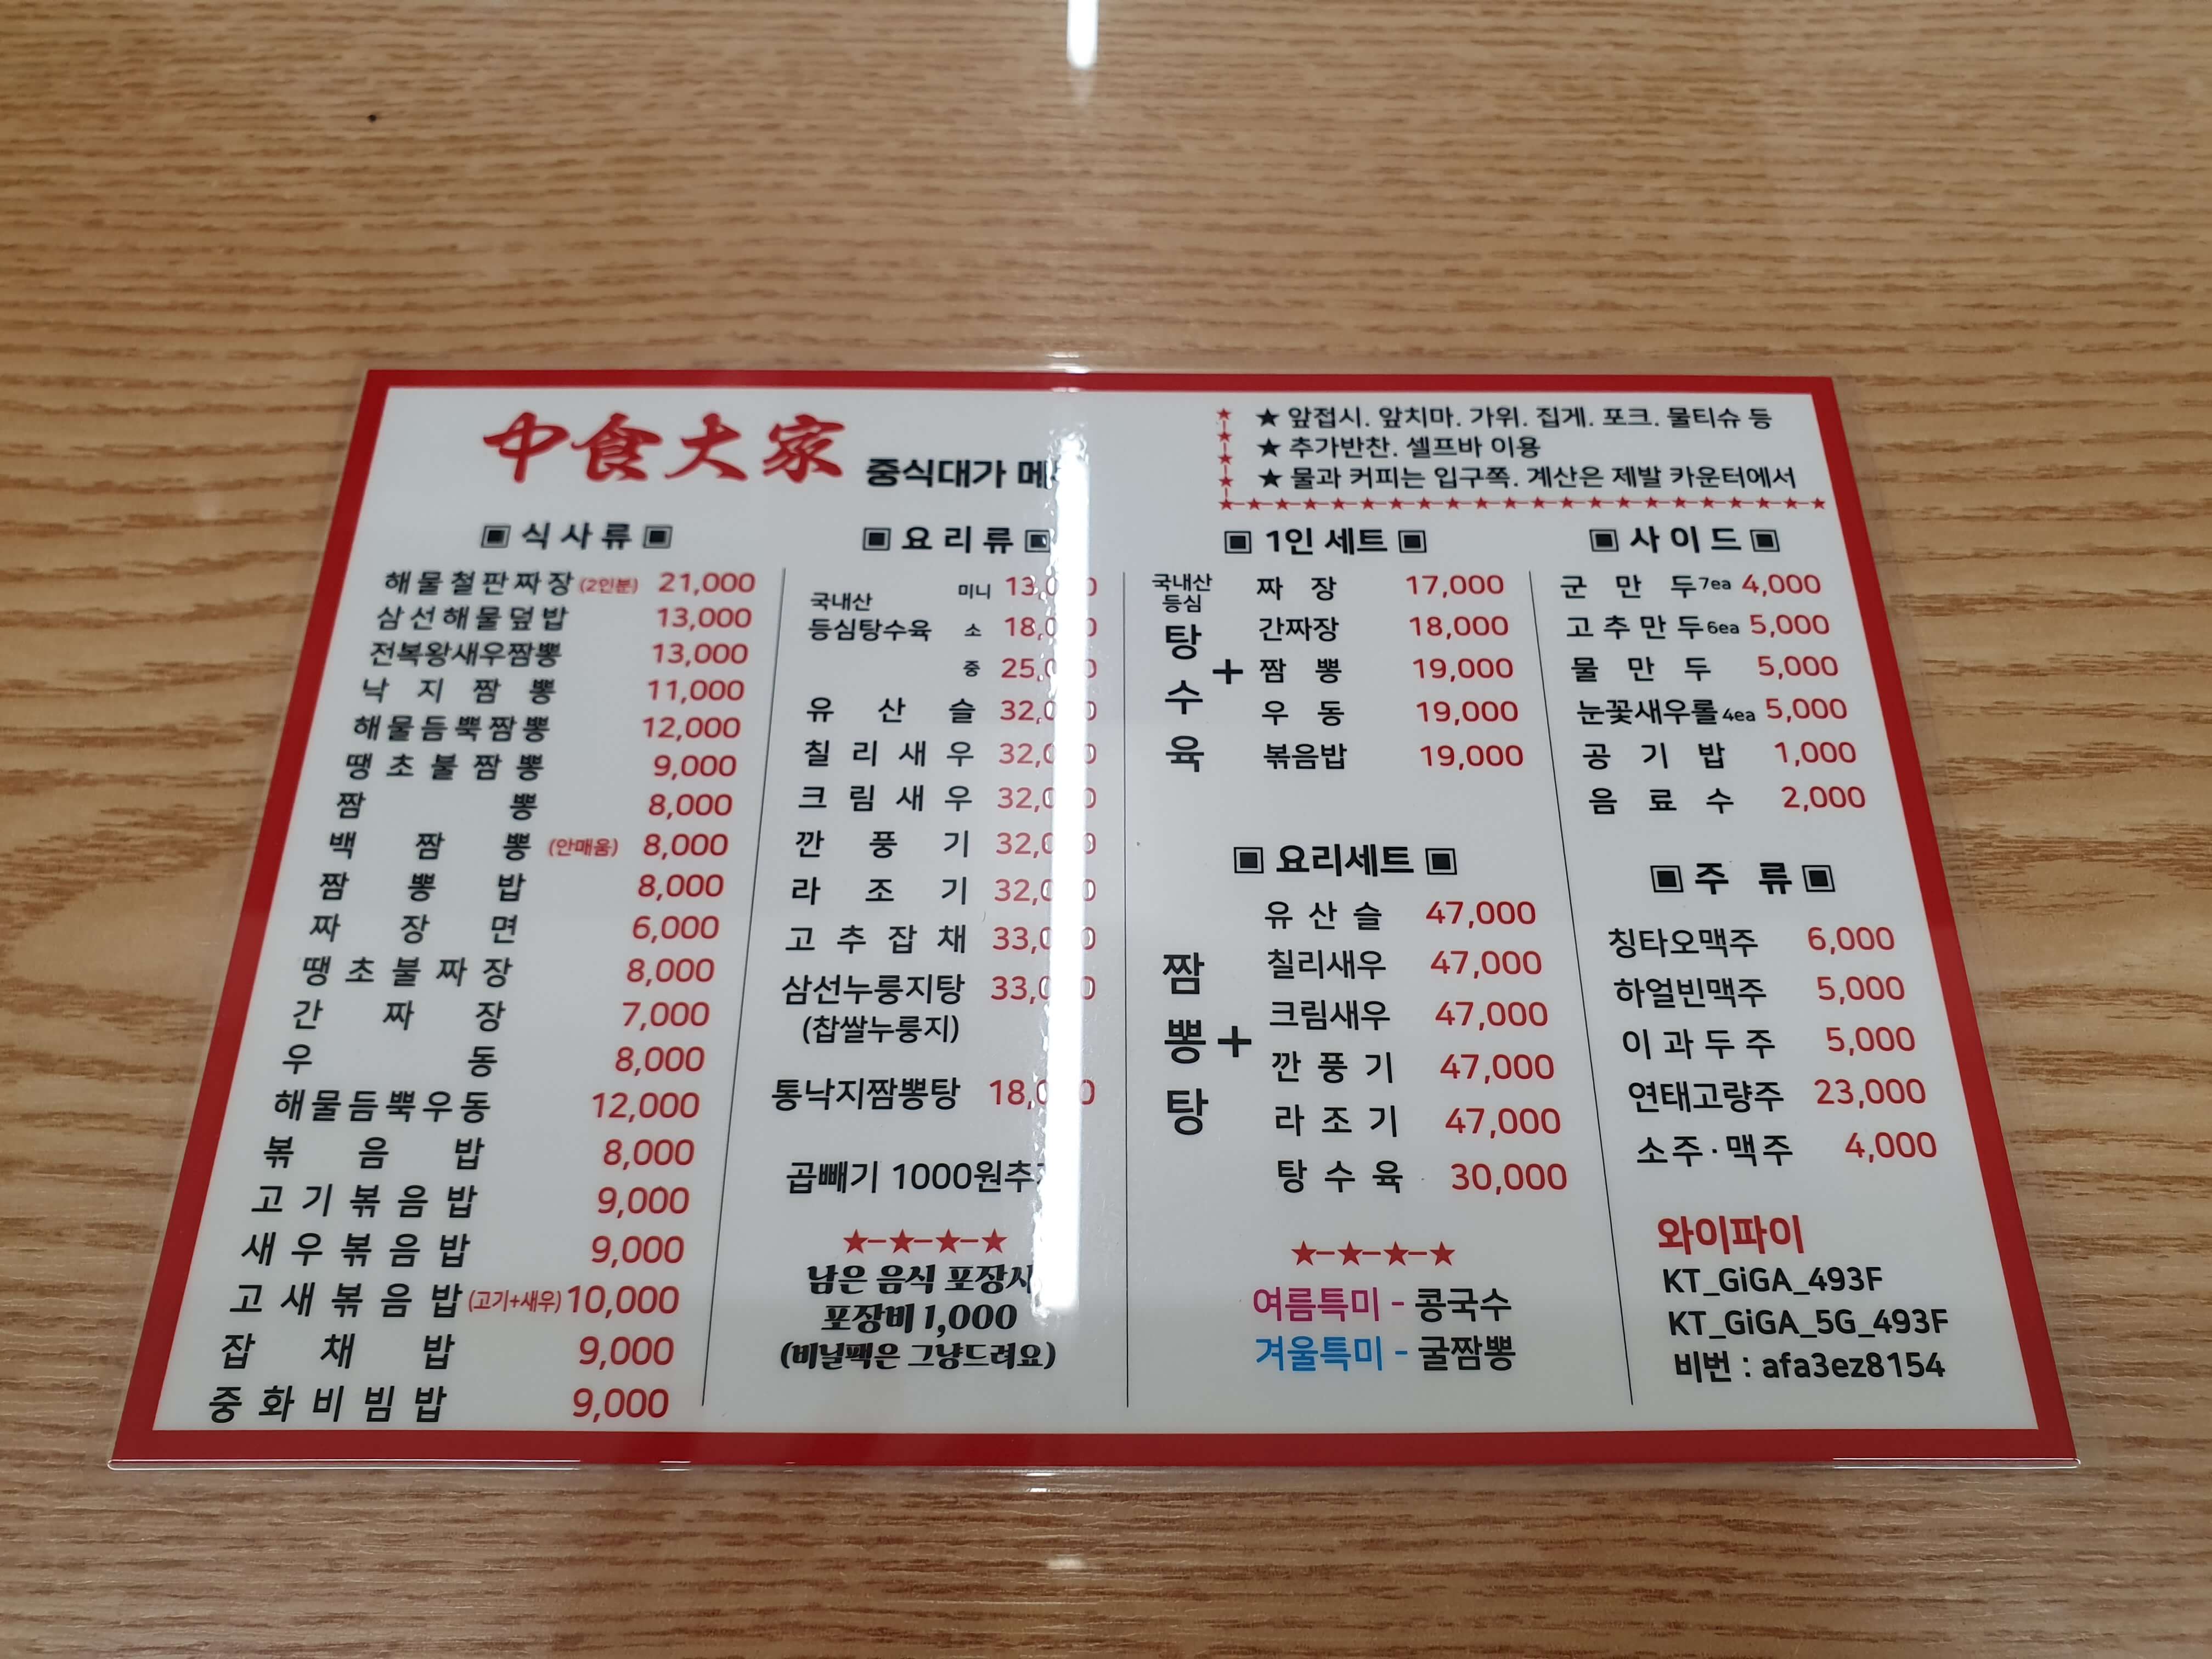 中食大家 中식대가
★ 앞접시. 앞치마. 가위. 집게. 포크. 물티슈 등
★ 추가반찬. 셀프바 이용
★ 물과 커피는 입구쪽. 계산은 제발 카운터에서
▣ 식사류 ▣
해물철판짜장 (2인분) 21,000
삼선해물덮밥 13,000
전복왕새우짬뽕 13,000
낙지짬뽕 11,000
해물듬뿍짬뽕 12,000
땡초불짬뽕 9,000
짬뽕 8,000
백짬뽕 (안매움) 8,000
짬뽕밥 8,000
짜장면 6,000
땡초불짜장 8,000
간짜장 7,000
우동 8,000
해물듬뿍우동 12,000
볶음밥 8,000
고기볶음밥 9,000
새우볶음밥 9,000
고새볶음밥 (고기+새우) 10,000
잡채밥 9,000
중화비빔밥 9,000
▣ 요리류 ▣
국내산
등심탕수육
미니 13,000
소 18,000
중 25,000
유산슬 32,000
칠리새우 32,000
크림새우 32,000
깐풍기 32,000
라조기 32,000
고추잡채 33,000
삼선누룽지탕 33,000
(찹쌀누룽지)
통낙지짬뽕탕 18,000
곱빼기 1000원
★-★-★-★
남은 음식 포장시
포장비 1,000
(비닐팩은 그냥드려요)
▣ 1인 세트 ▣
국내산
등심
탕수육 +
짜장 17,000
간짜장 18,000
짬뽕 19,000
우동 19,000
볶음밥 19,000
▣ 요리세트 ▣
짬뽕탕 +
유산슬 47,000
칠리새우 47,000
크림새우 47,000
깐풍기 47,000
라조기 47,000
탕수육 30,000
★-★-★-★
여름특미 - 콩국수
겨울특미 - 굴짬뽕
▣ 사이드 ▣
군만두 7ea 4,000
고추만두 6ea 5,000
물만두 5,000
눈꽃새우롤 4ea 5,000
공기밥 1,000
음료수 2,000
▣ 주류 ▣
칭타오맥주 6,000
하얼빈맥주 5,000
이과두주 5,000
연태고량주 23,000
소주·맥주 4,000
와이파이
KT_GiGA_493F
KT_GiGA_5G_493F
비번 : afa3ez8154